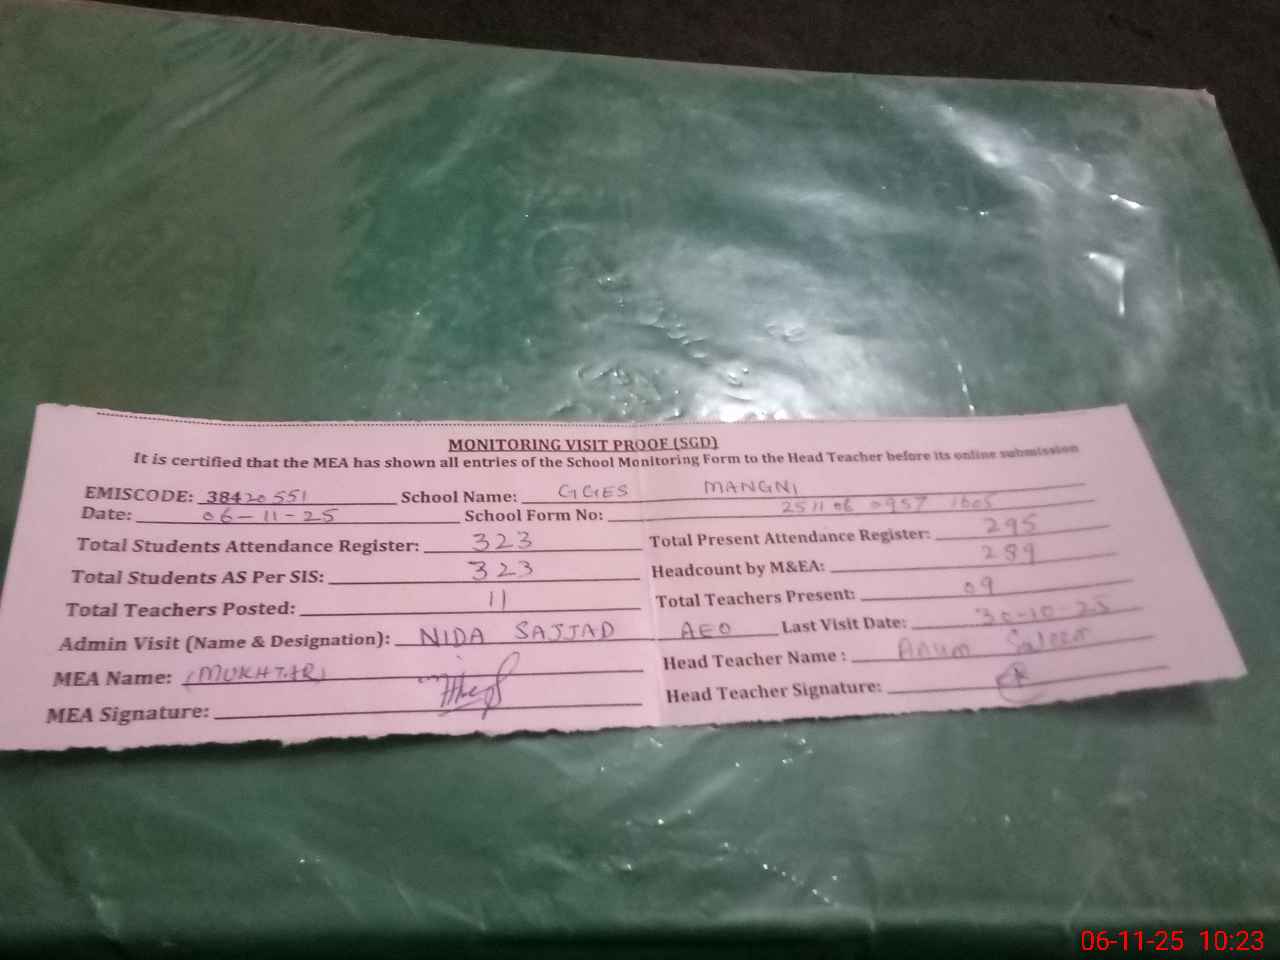 MONITORING VISIT PROOF (SGD)
It is certified that the MEA has shown all entries of the School Monitoring Form to the Head Teacher before its online submission
EMISCODE: 38420551 School Name: GGES MANGNI
Date: 06-11-25 School Form No: 251106 0957 1605
Total Students Attendance Register: 323 Total Present Attendance Register: 295
Total Students AS Per SIS: 323 Headcount by M&EA: 289
Total Teachers Posted: 11 Total Teachers Present: 09
Admin Visit (Name & Designation): NIDA SAJJAD AEO Last Visit Date: 30-10-25
MEA Name: (MUKHTAR) Head Teacher Name : Anum Saleem
MEA Signature: Head Teacher Signature:
06-11-25 10:23